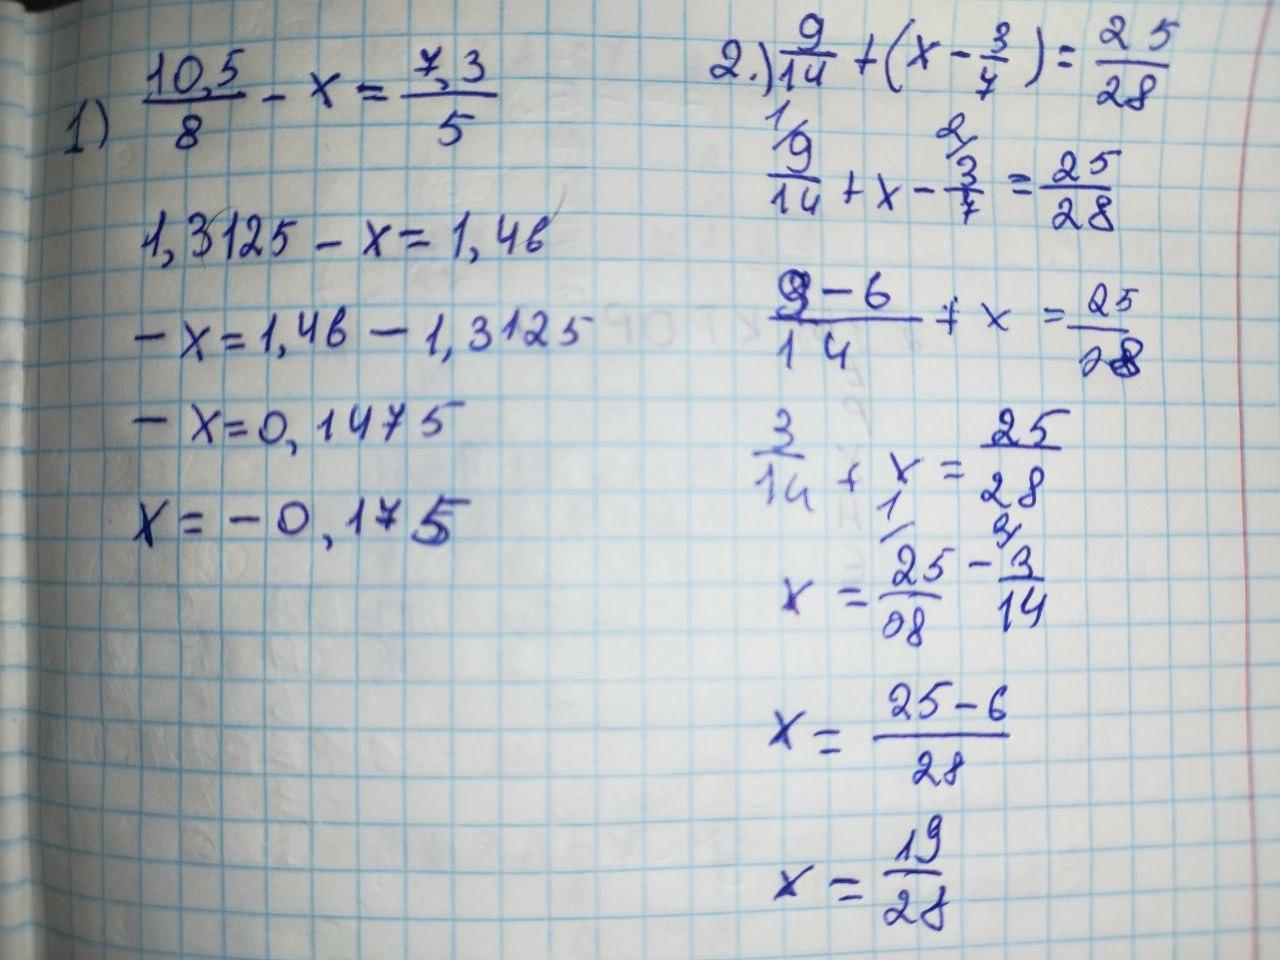 1) 10,5/8 - x = 7,3/5
1,3125 - x = 1,46
- x = 1,46 - 1,3125
- x = 0,1475
x = - 0,175
2.) 9/14 + (x - 3/7) = 25/28
1/ 9/14 + x - 2/ 3/7 = 25/28
9 - 6/14 + x = 25/28
3/14 + x = 25/28
x = 1/ 25/28 - 2/ 3/14
x = 25 - 6/28
x = 19/28